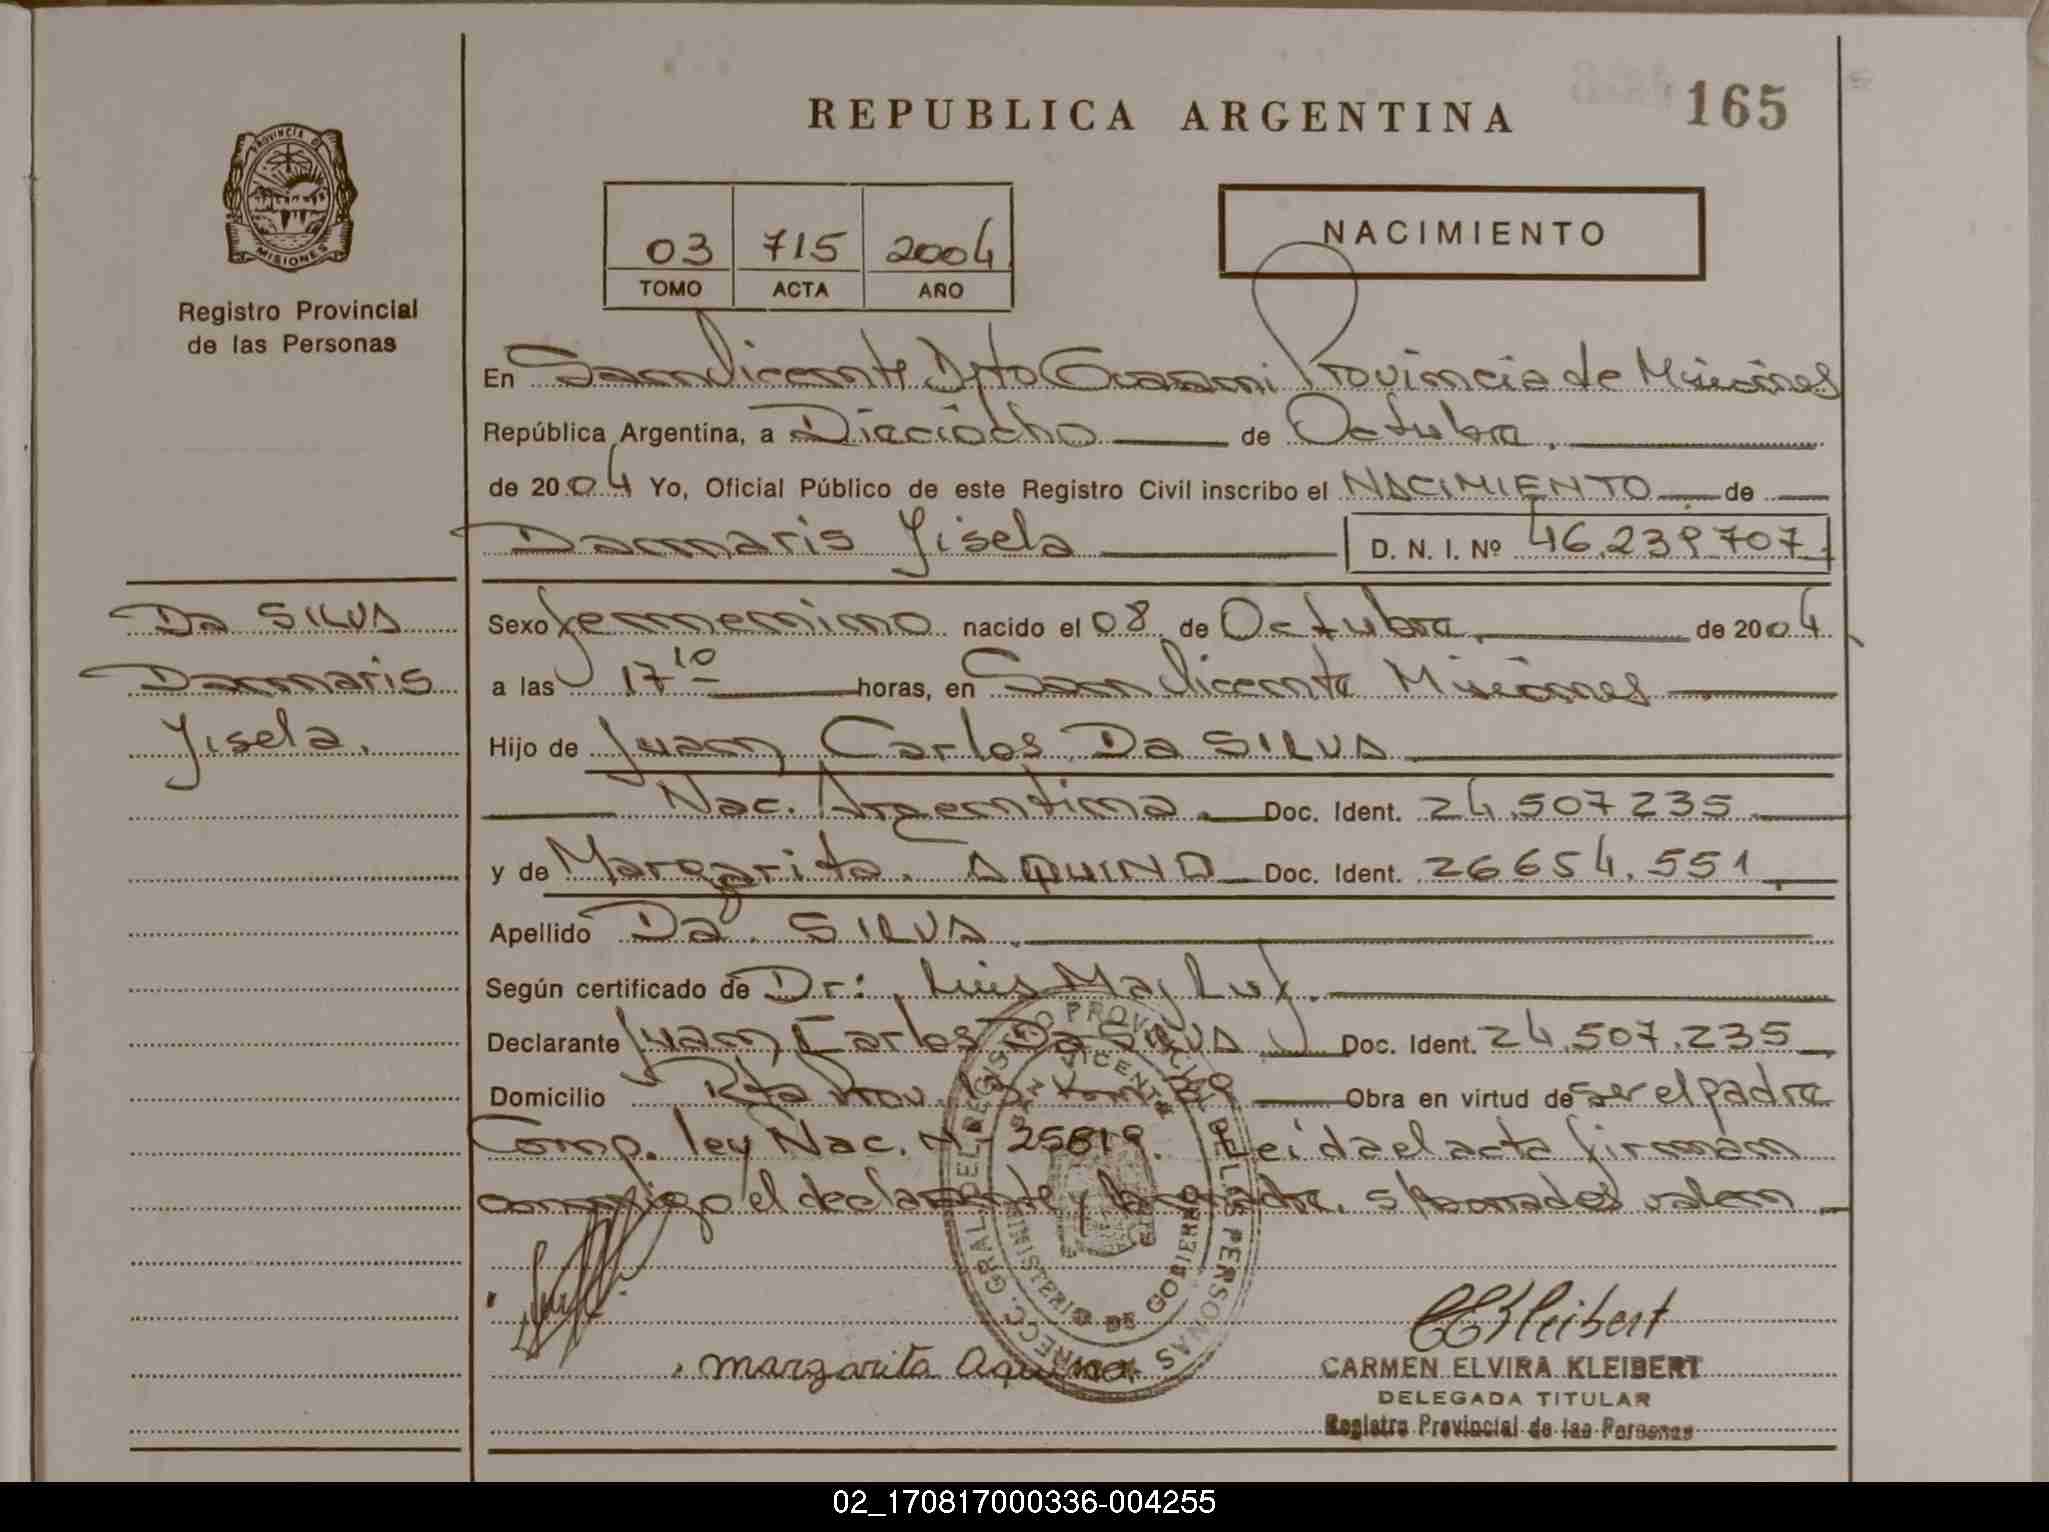 REPUBLICA ARGENTINA
165
PROVINCIA DE MISIONES
Registro Provincial
de las Personas
03 715 2004
TOMO ACTA AÑO
NACIMIENTO
En San Vicente Dpto Guarani Provincia de Misiones
República Argentina, a Dieciocho de Octubre.
de 2004 Yo, Oficial Público de este Registro Civil inscribo el NACIMIENTO de
Dammaris Yisela D. N. I. Nº 46.239.707.
Da SILVA
Dammaris
Yisela.
Sexo femenino nacido el 08 de Octubre de 2004.
a las 17 10 horas, en San Vicente Misiones
Hijo de Juan Carlos Da SILVA
Nac. Argentina. Doc. Ident. 24.507235
y de Margarita. AQUINO Doc. Ident. 26654.551
Apellido Da SILVA.
Según certificado de Dr: Luis Majluf.
Declarante Juan Carlos Da SILVA Doc. Ident. 24.507.235
Domicilio Rta Prov. 13 km Obra en virtud de ser el padre
Comp. ley Nac. N- 25819. Leida el acta firman
conmigo el declarante y la madre. s/borrados valen
DIRECC. GRAL. DEL REGISTRO PROVINCIAL DE LAS PERSONAS
SAN VICENTE
MINISTERIO DE GOBIERNO
CEKleibert
margarita Aquino.
CARMEN ELVIRA KLEIBERT
DELEGADA TITULAR
Registro Provincial de las Personas
02_170817000336-004255